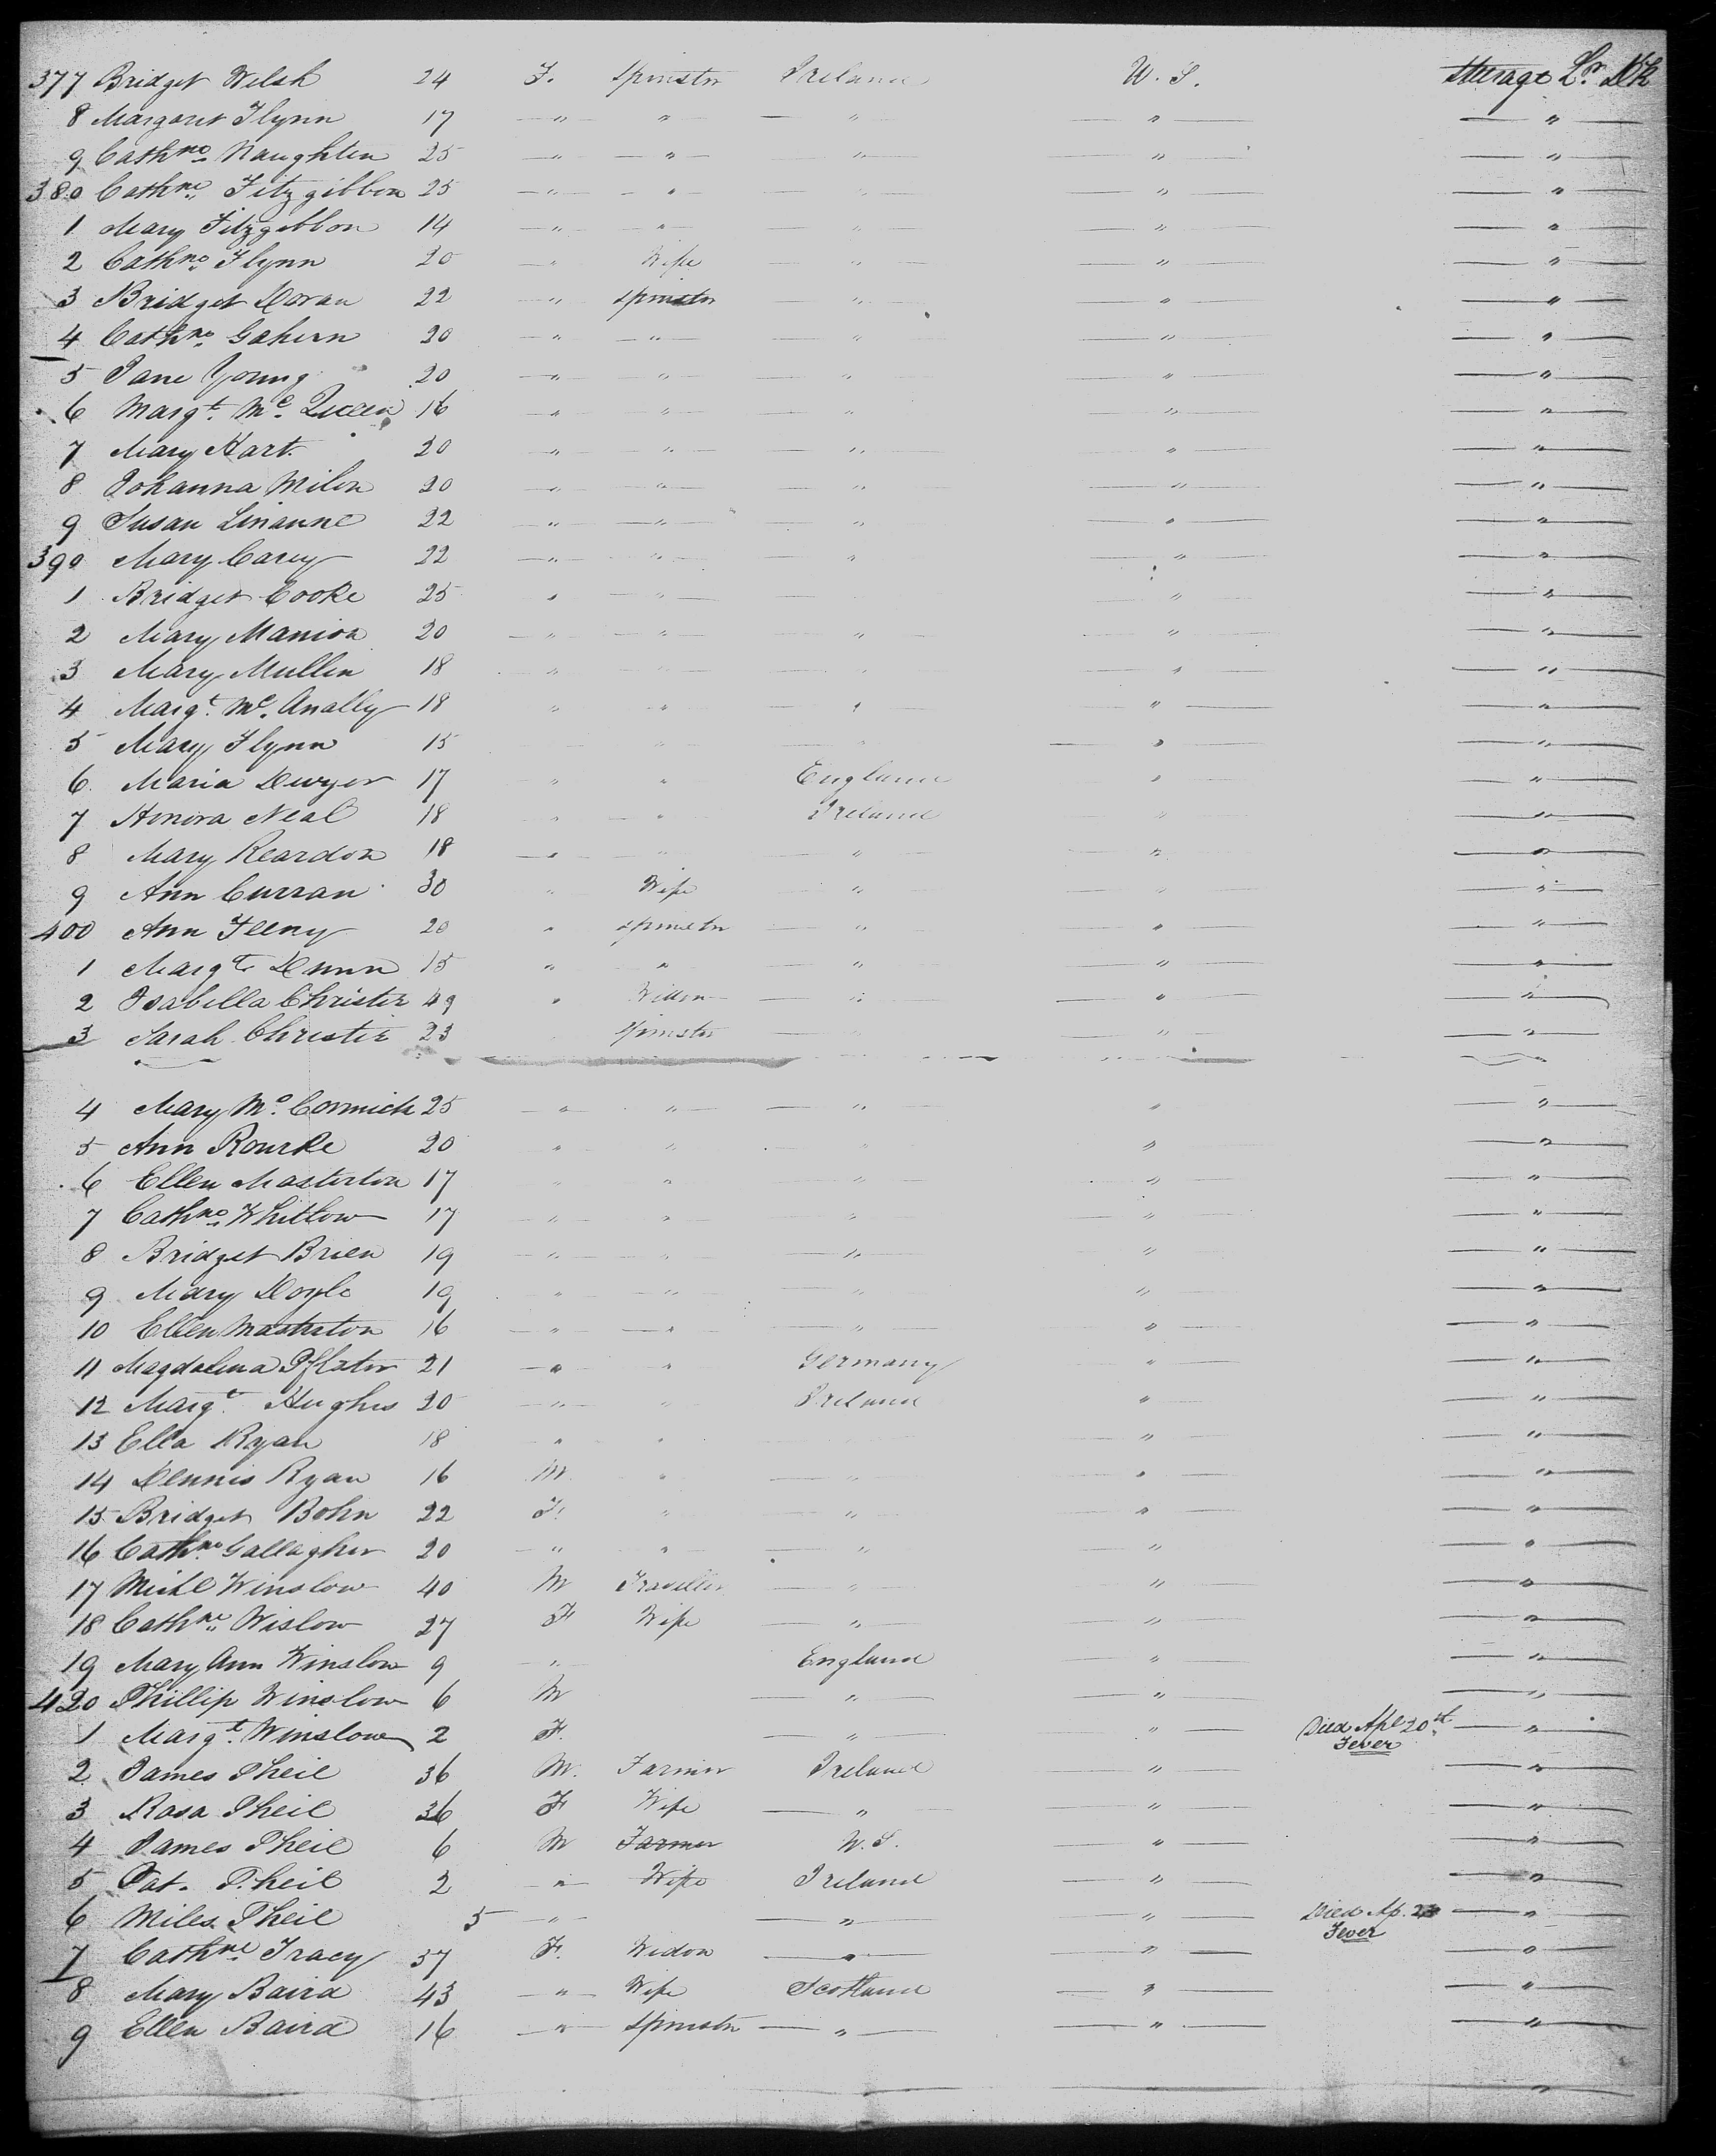 377 Bridget Welsh 24 F. Spinstr Ireland U.S. Steerage Lr. Dk
8 Margaret Flynn 17 " " " " "
9 Cathne Naughten 25 " " " " "
380 Cathne Fitzgibbon 25 " " " " "
1 Mary Fitzgibbon 14 " " " " "
2 Cathne Flynn 20 " Wife " " "
3 Bridget Doran 22 " Spinstr " " "
4 Cathne Gahern 20 " " " " "
5 Jane Young 20 " " " " "
6 Margt. Mc. Queen 16 " " " " "
7 Mary Hart. 20 " " " " "
8 Johanna Milon 20 " " " " "
9 Susan Linanne 22 " " " " "
390 Mary Carey 22 " " " " "
1 Bridget Cooke 25 " " " "
2 Mary Manion 20 " " " " "
3 Mary Mullen 18 " " " "
4 Margt. Mc. Anally 18 " " " " "
5 Mary Flynn 15 " " " "
6 Maria Dwyer 17 " " England " "
7 Honora Neal 18 " " Ireland " "
8 Mary Reardon 18 " " " " "
9 Ann Curran 30 " Wife " " "
400 Ann Feeny 20 " Spinstr " " "
1 Margt. Dunn 15 " " " " "
2 Isabella Christie 49 " Widow " " "
3 Sarah Christie 23 Spinstr " "
4 Mary Mc. Cormick 25 " " " " "
5 Ann Rourke 20 " " " "
6 Ellen Masterton 17 " " " " "
7 Cathne Whitlow 17 " " " " "
8 Bridget Brien 19 " " " " "
9 Mary Doyle 19 " " " " "
10 Ellen Masterton 16 " " " " "
11 Magdalena Pflater 21 " " Germany " "
12 Margt. Hughes 20 " " Ireland " "
13 Ella Ryan 18 " " " "
14 Dennis Ryan 16 M " " " "
15 Bridget Bohn 22 F. " " " "
16 Cathne Gallagher 20 " " " " "
17 Michl Winslow 40 M Traveller " " "
18 Cathne Wislow 27 F Wife " " "
19 Mary Ann Winslow 9 " England " "
420 Phillip Winslow 6 M " " "
1 Margt. Winslow 2 F. " " Died Apl 20th "
Fever
2 James Pheil 36 M. Farmer Ireland " "
3 Rosa Pheil 36 F Wife " " "
4 James Pheil 6 M Farmer U.S. " "
5 Pat. Pheil 2 " Wife Ireland " "
6 Miles Pheil 5 " " " Died Ap. "
Fever
7 Cathne Tracy 37 F. Widow " " "
8 Mary Baird 43 " Wife Scotland " "
9 Ellen Baird 16 " Spinstr " " "
"